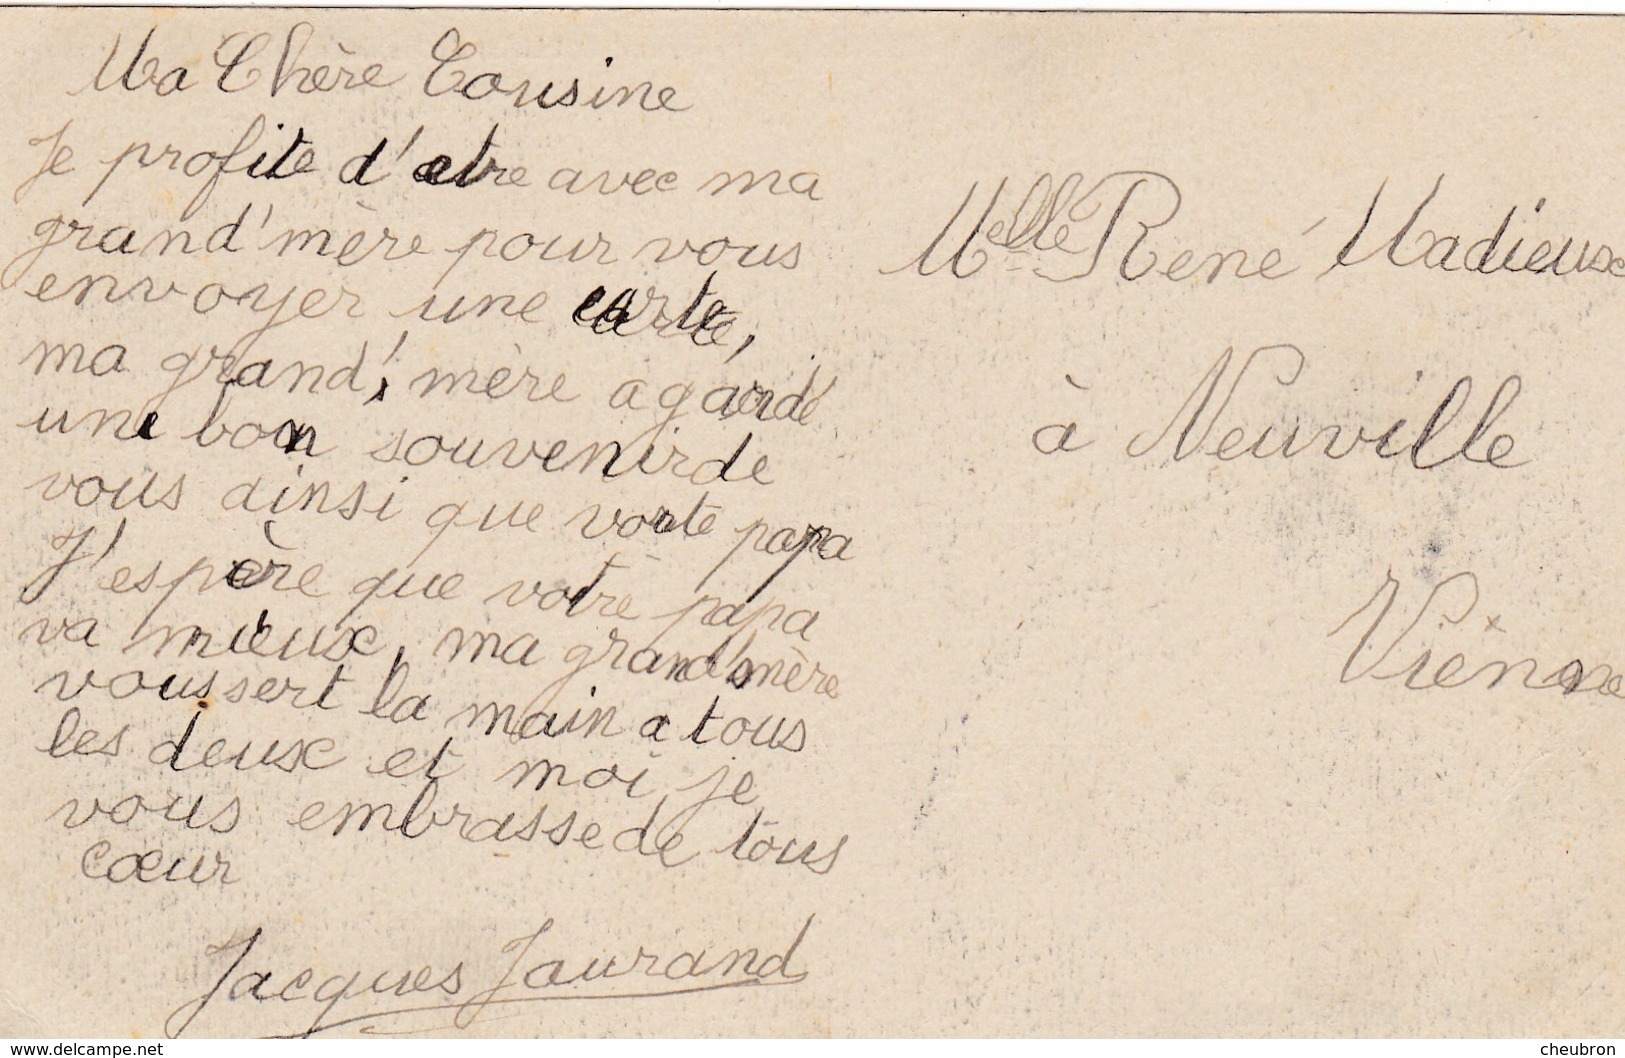 Ma Chère Cousine
Je profite d'etre avec ma
grand'mère pour vous
envoyer une carte,
ma grand'mère a gardé
une bon souvenir de
vous ainsi que vorte papa
J'espère que votre papa
va mieux, ma grand'mère
vous sert la main a tous
les deux et moi je
vous embrasse de tous
cœur
Jacques Jaurand
Melle René Madieux
à Neuville
Viènne
www.delcampe.net
cheubron